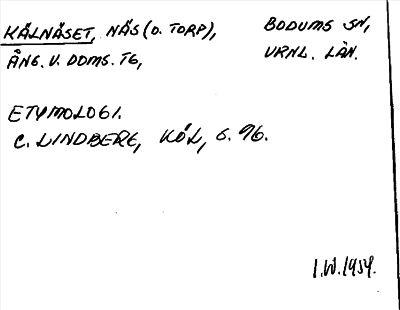 KÄLNÄSET, NÄS (O. TORP), BODUMS SN,
ÅNG. V. DOMS. TG, VRNL. LÄN.
ETYMOLOGI.
C. LINDBERG, KÖL, S. 96.
I.W. 1954.